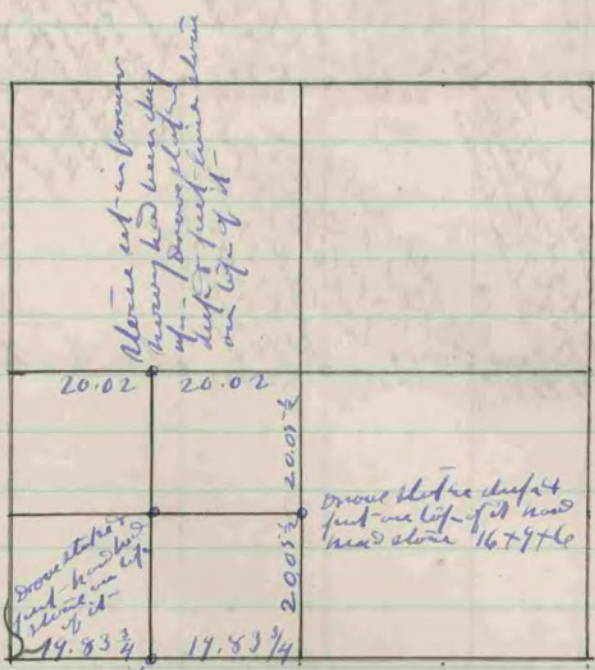 Stone set in former
having had been dug
up - drove stake
deep & put lime stone
on top of it -
20.02 20.02
20.05½
20.05½
drove stake deep &
put on top of it hard
head stone 16+9+6
drove stake &
put hard head
stone on top
of it -
19.83¾ 19.83¾